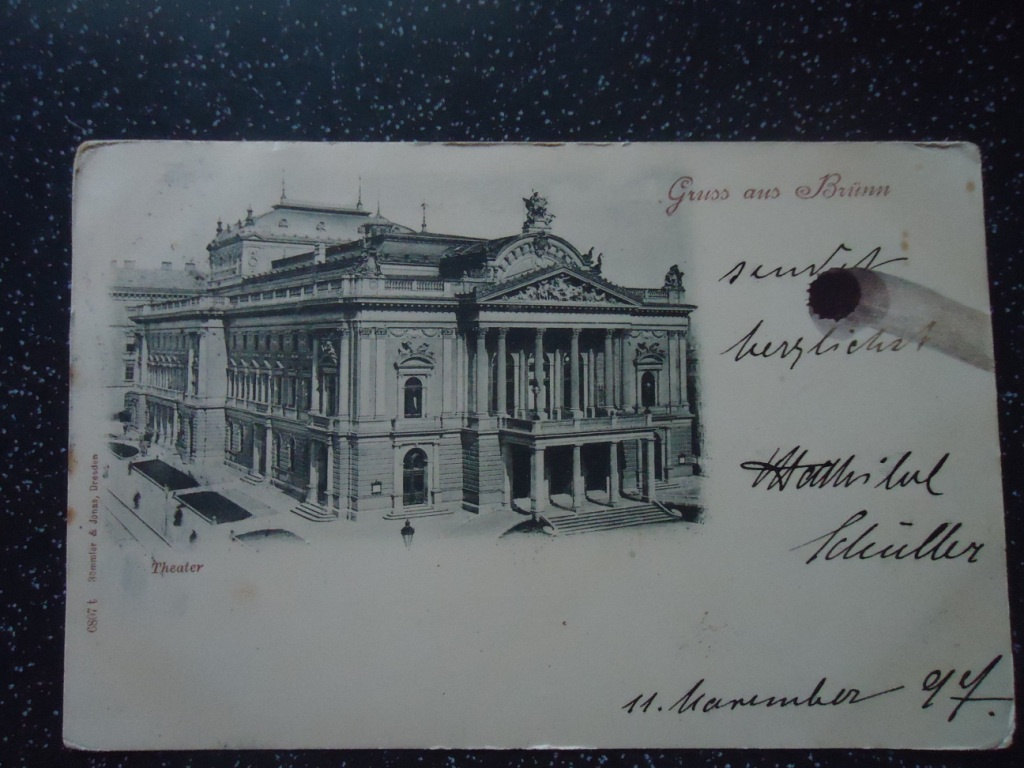 Gruss aus Brünn
sendet
herzlichst
Mathilde
Schüller
Theater
Römmler & Jonas, Dresden
11. November 97.